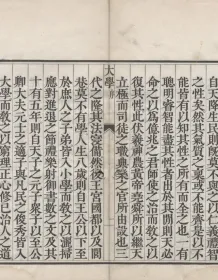 自天降生民則既莫不與之以仁義禮智
之性矣然其氣質之稟或不能齊是以不
能皆有以知其性之所有而全之也一有
聰明睿智能盡其性者出於其閒則天必
命之以爲億兆之君師使之治而教之以
復其性此伏羲神農黃帝堯舜所以繼天
立極而司徒之職典樂之官所由設也三
大學
代之隆其法寖備然後王宮國都以及閭
巷莫不有學人生八歲則自王公以下至
於庶人之子弟皆入小學而教之以灑掃
應對進退之節禮樂射御書數之文及其
十有五年則自天子之元子衆子以至公
卿大夫元士之適子與凡民之俊秀皆入
大學而教之以窮理正心修己治人之道